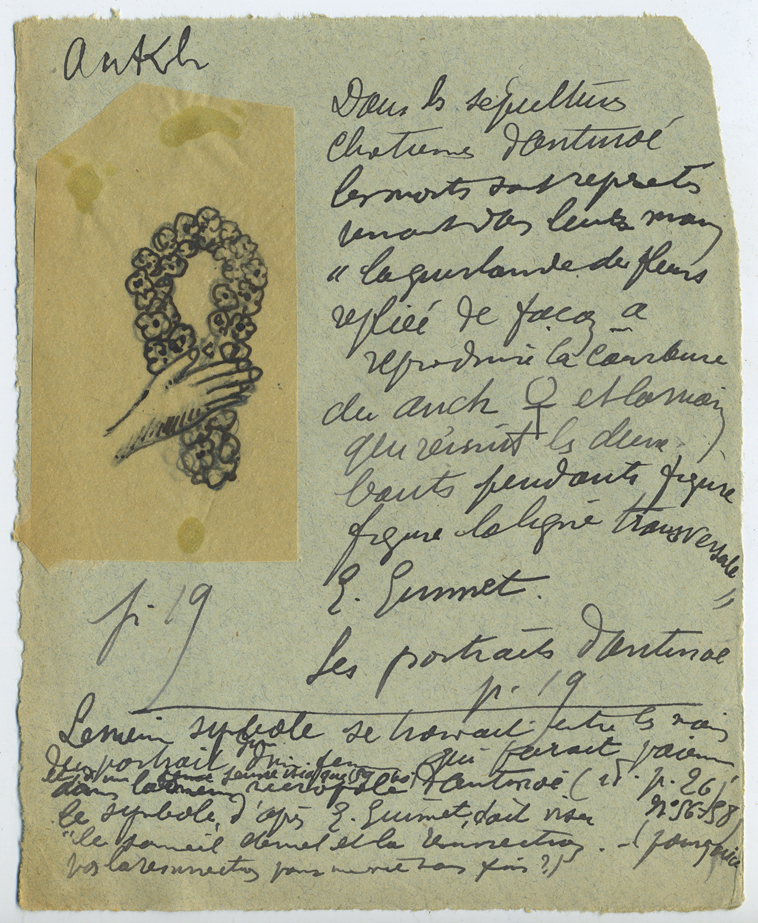 Ankh
Dans les sépultures
chrétiennes d'antinoé
les morts sont représentés
tenant dans leurs mains
" la guirlande de fleurs
repliée de façon a
reproduire la courbure
du anch ♀ et la main
qui réunit les deux
bouts pendants figure
figure la ligne transversale
"
E. Guimet.
Les portraits d'antinoé
p. 19
p. 19
Le même symbole se trouvait entre les mains
du portrait d'un qui parait païen
et d'un
dans la même nécropole d'antinoé (id. p. 26)
le symbole, d'après E. Guimet, doit viser nº 56-58)
"le sommeil éternel et la résurrection. - (pourquoi
pas la résurrection pour une vie sans fin ?)